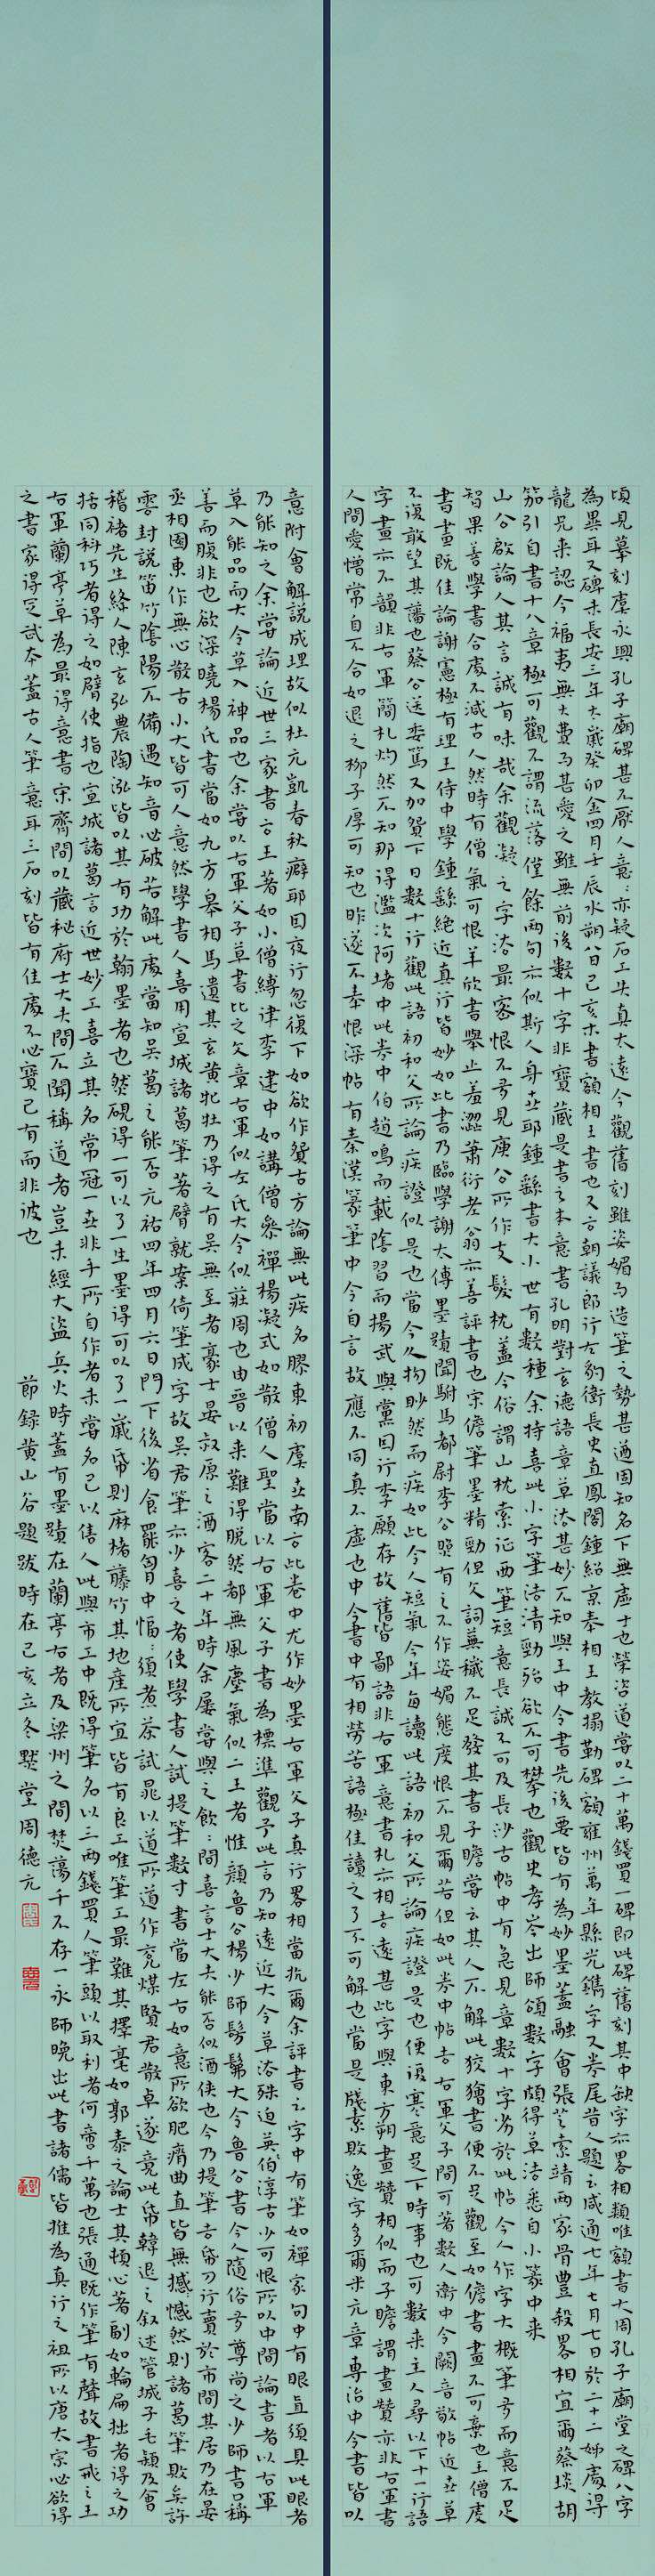 頃見摹刻虞永興孔子廟碑甚不厭人意意亦疑石工失真太遠今觀舊刻雖姿媚而造筆之勢甚遒固知名下無虛士也榮咨道嘗以二十萬錢買一碑即此碑舊刻其中缺字亦略相類唯額書大周孔子廟堂之碑八字
為異耳又碑末長安三年太歲癸卯金四月壬辰水朔八日己亥木書額相王書也又言朝議郎行左豹衛長史直鳳閣鍾紹京奉相王教搨勒碑額雍州萬年縣光鐫字又卷尾昔人題云咸通七年七月七日於二十二姊處得
龍兄來認今福夷無大費而甚愛之雖無前後數十字非寶藏是書之本意書孔明對玄德語章草法甚妙不知與王中令書先後要皆有為妙墨蓋融會張芝索靖兩家骨豐殺略相宜爾蔡琰胡
笳引自書十八章極可觀不謂流落僅餘兩句亦似斯人身世耶鍾繇書大小世有數種余特喜此小字筆法清勁殆欲不可攀也觀史孝岑出師頌數字頗得草法悉自小篆中來
山公啟論人其言誠有味哉余觀凝之字法最密恨不多見庾公所作支髮枕蓋今俗謂山枕索征西筆短意長誠不可及長沙古帖中有急見章數十字劣於此帖今人作字大概筆多而意不足
智果善學書合處不減古人然時有僧氣可恨羊欣書舉止羞澀蕭衍老翁亦善評書也宋儋筆墨精勁但文詞蕪穢不足發其書子瞻嘗云其人不解此狡獪書便不足觀至如儋書畫不可棄也王僧虔
書畫既佳論謝憲極有理王侍中學鍾繇絕近真行皆妙如此書乃臨學謝太傅墨蹟聞駙馬都尉李公照有之不作姿媚態度恨不見爾若但如此卷中帖去右軍父子間可著數人衞中令闕音敬帖近世草
不復敢望其藩也蔡公送委篤又加贊下日數十行觀此語初和父所論疾證似是也當今人拘眇然而疾如此今人短氣今年每讀此語初和父所論疾證是也便復寒意足下時事也可數來主人尋以下十一行語
字畫亦不韻非右軍簡札灼然不知那得濫次阿堵中此卷中伯趙鳴而載陰習而揚武與黨因行李願存故舊皆鄙語非右軍意書札亦相去遠甚此字與東方朔畫贊相似而子瞻謂畫贊亦非右軍書
人間愛憎常自不合如退之柳子厚可知也昨遂不奉恨深帖有秦漢篆筆中令自言故應不同真不虛也中令書中有相勞苦語極佳讀之了不可解也當是牋素敗逸字多爾米元章專治中令書皆以
意附會解說成理故似杜元凱春秋癖耶因夜行忽復下如欲作贊古方論無此疾名膠東初虞世南言此卷中尤作妙墨右軍父子真行略相當抗爾余評書云字中有筆如禪家句中有眼直須具此眼者
乃能知之余嘗論近世三家書言王著如小僧縛律李建中如講僧參禪楊凝式如散僧入聖當以右軍父子書為標準觀予此言乃知遠近大令草法殊迫英伯淳古少可恨所以中間論書者以右軍
草入能品而大令草入神品也余嘗以右軍父子草書比之文章右軍似左氏大令似莊周也由晉以來難得脫然都無風塵氣似二王者惟顏魯公楊少師髣髴大令魯公書今人隨俗多尊尚之少師書口稱
善而腹非也欲深曉楊氏書當如九方皋相馬遺其玄黃牝牡乃得之有吳無至者豪士晏叔原之酒客二十年時余屢嘗與之飲飲間喜言士大夫能否似酒俠也今乃提筆去筆刀行賣於市間其居乃在晏
丞相園東作無心散古小大皆可人意然學書人喜用宣城諸葛筆著臂就案倚筆成字故吳君筆亦少喜之者使學書人試提筆數寸書當左右如意所欲肥瘠曲直皆無憾憾然則諸葛筆敗矣許
雲封說笛竹陰陽不備遇知音必破若解此處當知吳葛之能否元祐四年四月六日門下後省食罷胷中愊愊須煮茶試晁以道所道作兗煤賢君散卓遂竟此紙韓退之敘述管城子毛穎及會
稽褚先生絳人陳玄弘農陶泓皆以其有功於翰墨者也然硯得一可以了一生墨得可以了一歲紙則麻楮藤竹其地產所宜皆有良工唯筆工最難其擇毫如郭泰之論士其頓心著副如輪扁拙者得之功
括同科巧者得之如臂使指也宣城諸葛言近世妙工喜立其名常冠一世非手所自作者未嘗名己以售人此與市工中既得筆名以三兩錢買人筆頭以取利者何啻千萬也張通既作筆有聲故書戒之王
右軍蘭亭草為最得意書宋齊間以藏秘府士大夫間不聞稱道者豈未經大盜兵火時蓋有墨蹟在蘭亭右者及梁州之間焚蕩千不存一永師晚出此書諸儒皆推為真行之祖所以唐太宗必欲得
之書家得定武本蓋古人筆意耳三石刻皆有佳處不必寶己有而非彼也
節錄黃山谷題跋時在己亥立冬默堂周德元